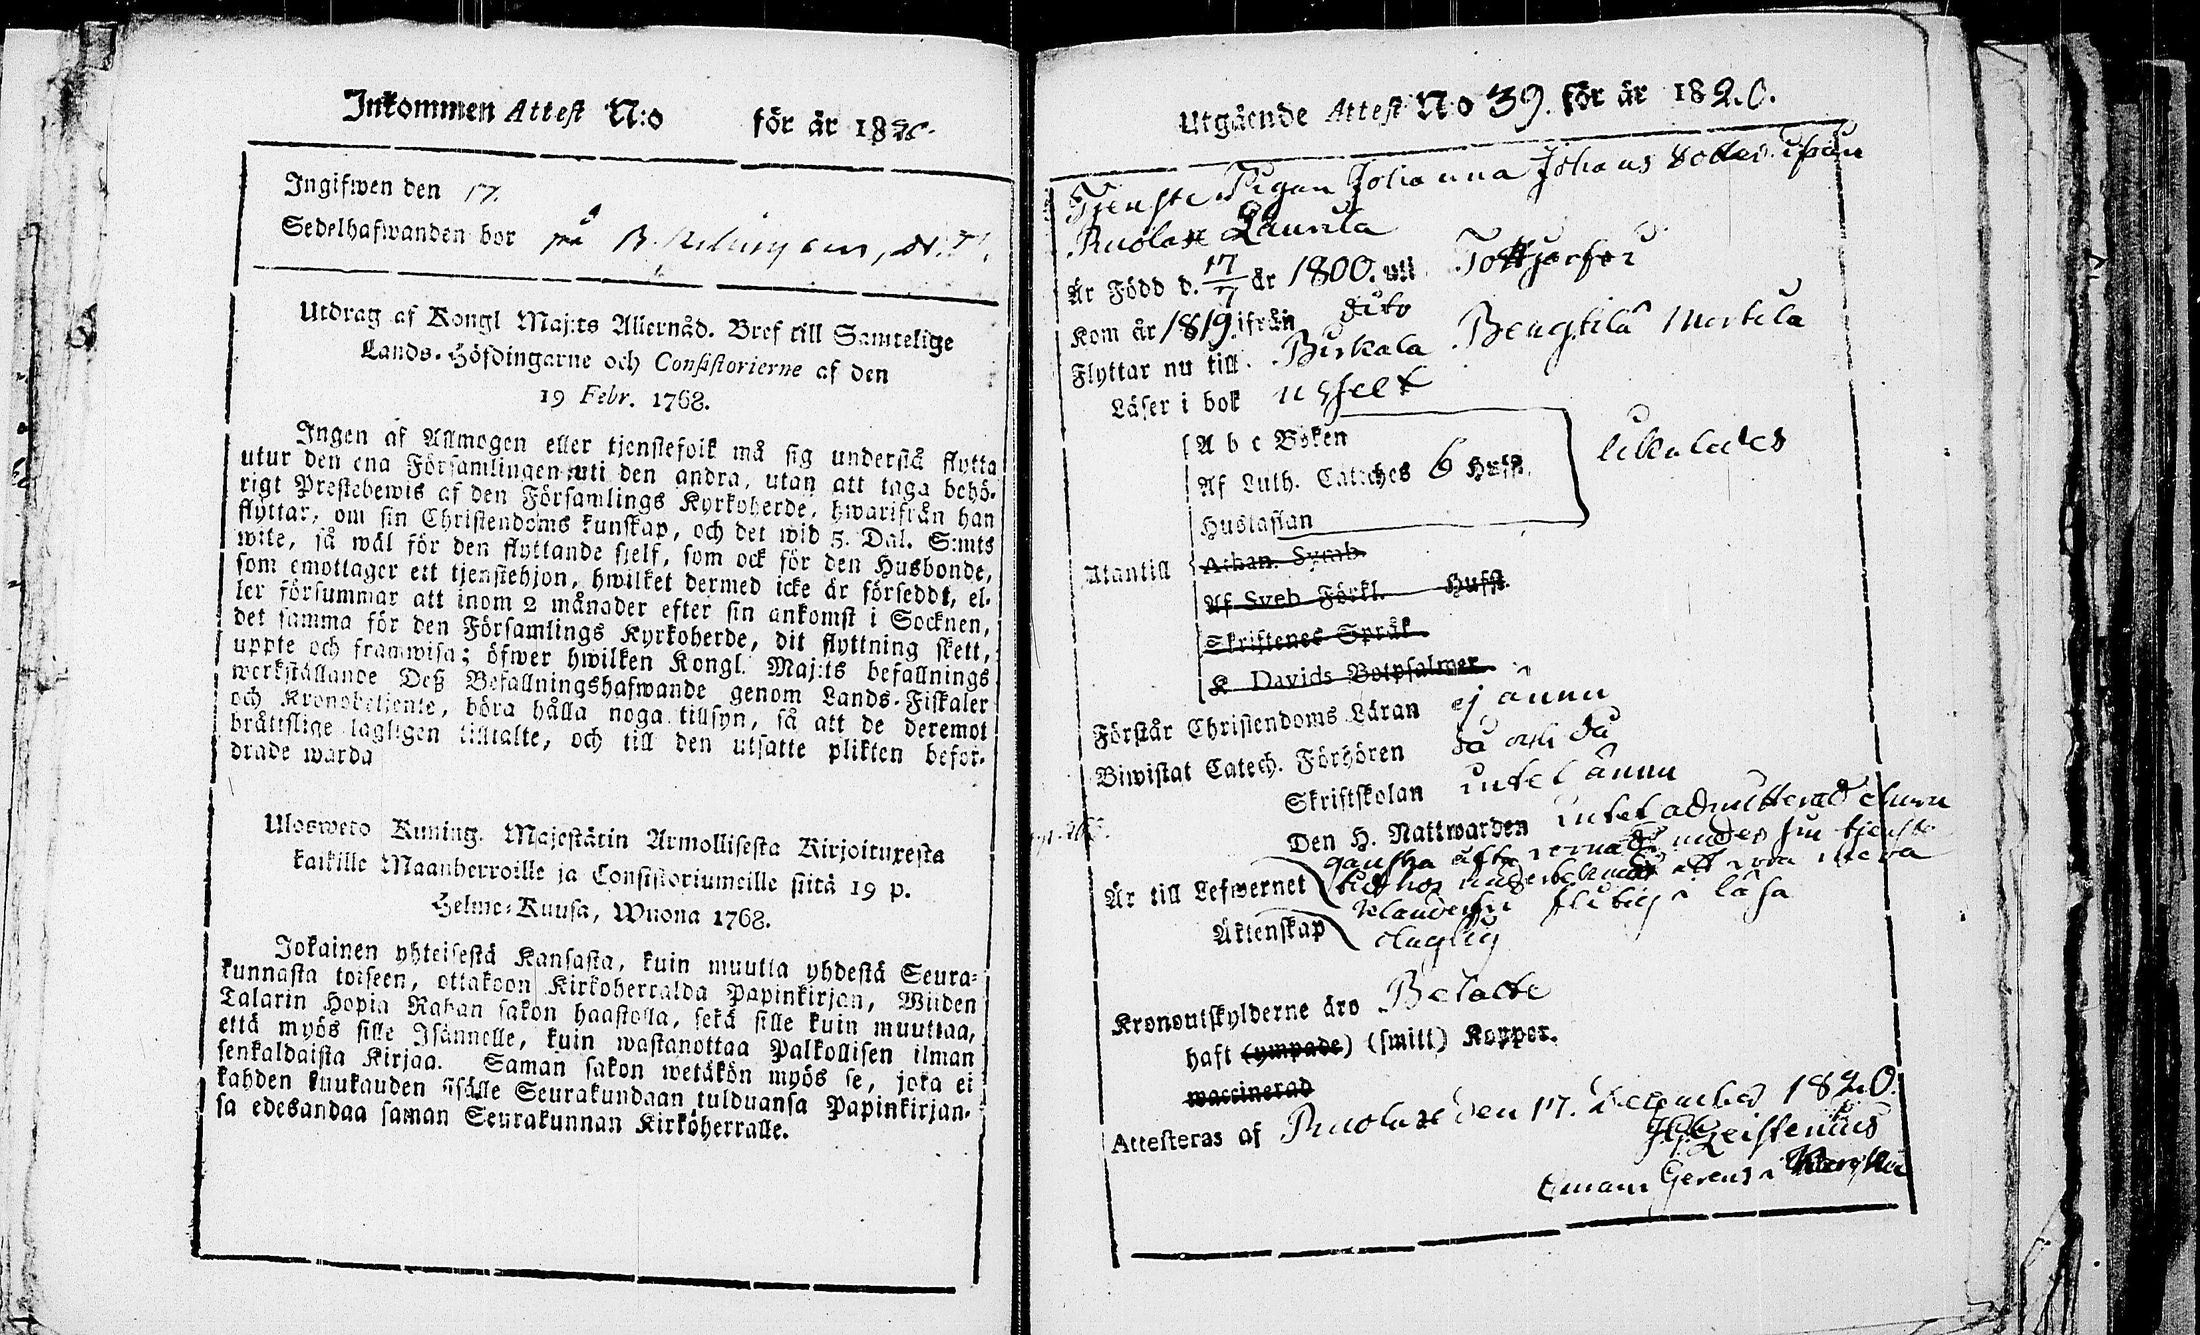 Inkommen Attest N:o för år 1820.
Ingifwen den 17.
Sedelhafwanden bor på
Utdrag af Kongl Maj:ts Allernåd. Bref till Samtelige
Lands-Höfdingarne och Consistorierne af den
19 Febr. 1768.
Ingen af Allmogen eller tjenstefolk må sig understå flytta
utur den ena Församlingen uti den andra, utan att taga behö-
rigt Prestebewis af den Församlings Kyrkoherde, hwarifrån han
flyttar, om sin Christendoms kunskap, och det wid 5. Dal. S:mts
wite, så wäl för den flyttande sjelf, som ock för den Husbonde,
som emottager ett tjenstehjon, hwilket dermed icke är försedt, el-
ler försummar att inom 2 månader efter sin ankomst i Socknen,
det samma för den Församlings Kyrkoherde, dit flyttning skett,
uppte och framwisa; öfwer hwilken Kongl. Maj:ts befallnings
werkställande Deß Befallningshafwande genom Lands-Fiskaler
och Kronobetjente, böra hålla noga tillsyn, så att de deremot
bråttslige lagligen tilltalte, och till den utsatte plikten befor-
drade warda
Ulosweto Kuning. Majestätin Armollisesta Kirjoituxesta
kaikille Maanherroille ja Consistoriumeille siitä 19 p.
Helme-Kuusa, Wuona 1768.
Jokainen yhteisestä Kansasta, kuin muutta yhdestä Seura-
kunnasta toiseen, ottakoon Kirkoherralda Papinkirjan, Wiiden
Talarin Hopia Rahan sakon haastolla, sekä sille kuin muuttaa,
että myös sille Isännelle, kuin wastanottaa Palkollisen ilman
senkaldaista Kirjaa. Saman sakon wetäkön myös se, joka ei
kahden kuukauden sisälle Seurakundaan tulduansa Papinkirjan-
sa edesandaa saman Seurakunnan Kirköherralle.
Utgående Attest No 39. för år 1820.
Tjenste Pigan Johanna Johans dotter ifrån
Ruolax Laurila
Är Född d. 17/7 år 1800. uti Tottjerfvi
Kom år 1819. ifrån dito
Flyttar nu till Birkala Bengtilä Mertila
Läser i bok
A b c Boken
Af Luth. Cateches 6 Hufst. likaledes
Hustaflan
Utantill Athan. Symb.
Af Sveb. Förkl. Hufst.
Skriftenes Språk
K. Davids Botpsalmer
Förstår Christendoms Läran ej ännu
Biwistat Catech. Förhören då och då
Skriftskolan intet ännu
Den H. Nattwarden intet admitterad ännu
Är till Lefwernet ganska under sin tjenste
tid har att wara mera
flitig i läsa
Äktenskap
Kronoutskylderne äro Betalte
haft (ympade) (smitt) Koppor.
waccinerad
Attesteras af Ruolax den 17. December 1820.